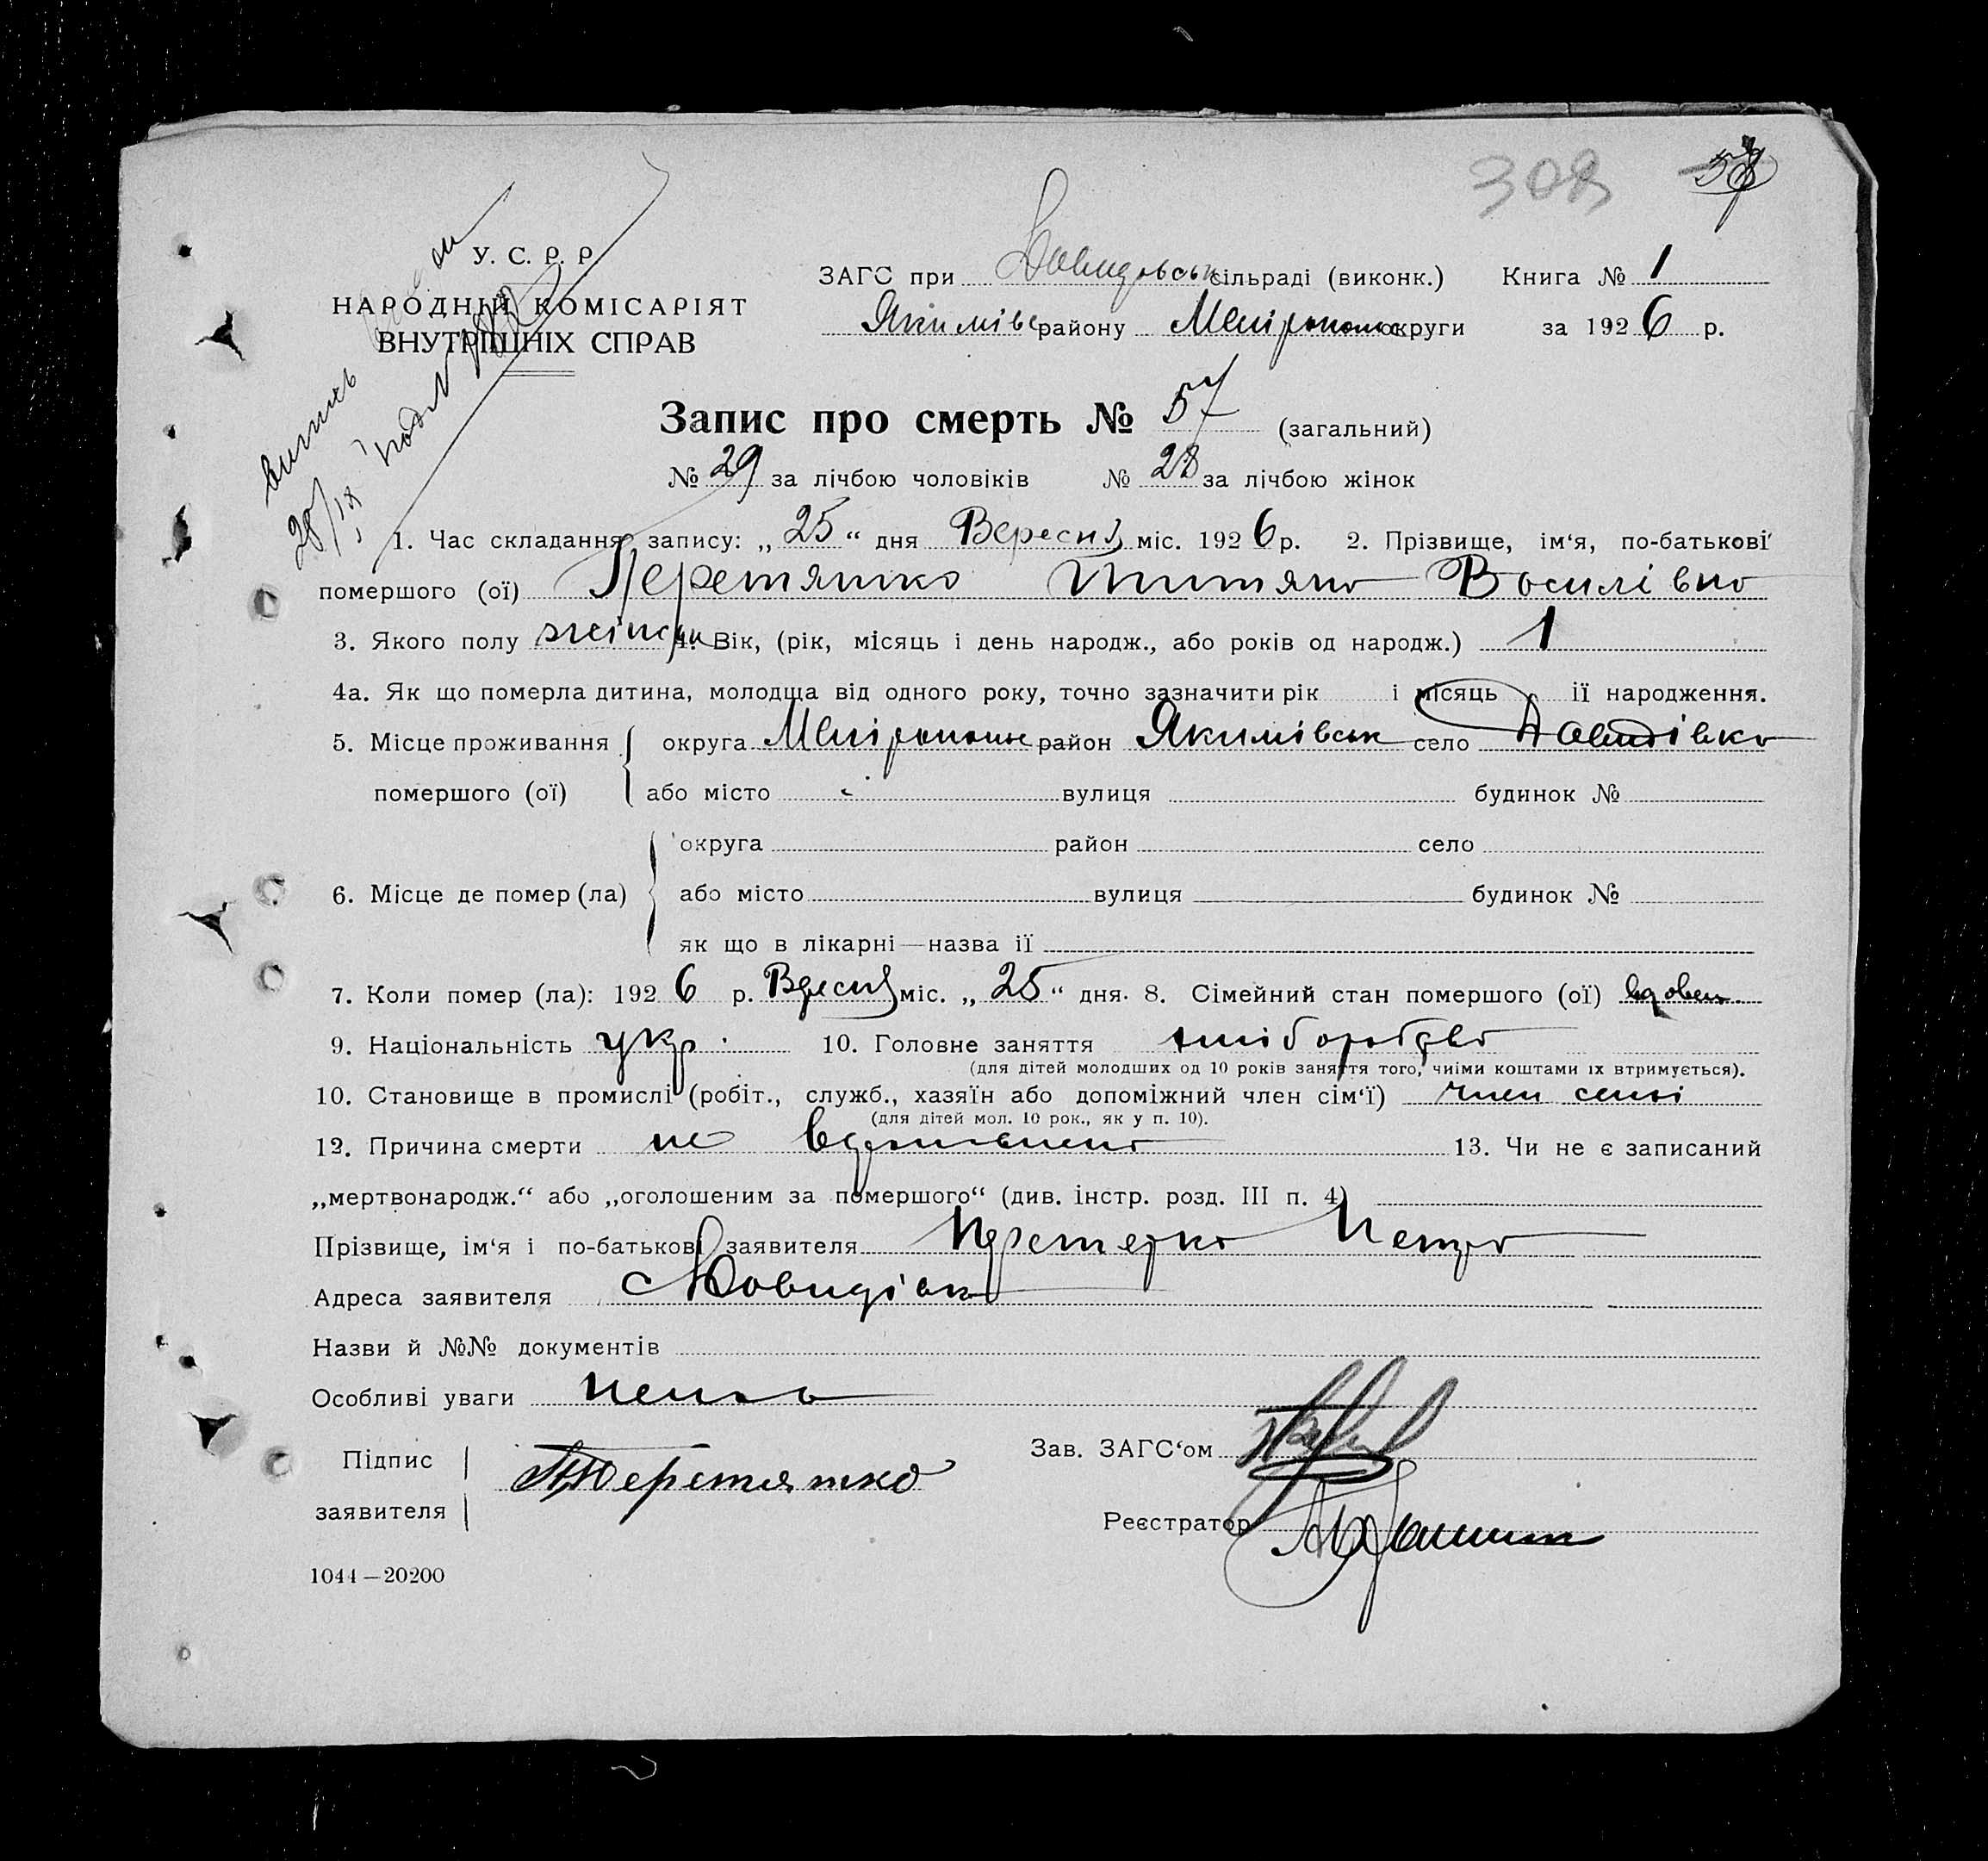 308
У. С. Р. Р.
НАРОДНІЙ КОМІСАРІЯТ
ВНУТРІШНІХ СПРАВ
выпись
28/IX
ЗАГС при Давидовськ сільраді (виконк.) Книга № 1
Якимівс району Меліропольс округи за 1926 р.
Запис про смерть № 57 (загальний)
№ 29 за лічбою чоловіків № 28 за лічбою жінок
1. Час складання запису: „25“ дня Вересня міс. 1926 р. 2. Прізвище, ім‘я, по-батькові
помершого (ої) Перетятко Титяно Восилівно
3. Якого полу жіноч 4. Вік, (рік, місяць і день народж., або років од народж.) 1
4а. Як що померла дитина, молодща від одного року, точно зазначити рік і місяць її народження.
5. Місце проживання округа Меліропольс район Якимівськ село Давидівко
помершого (ої) або місто вулиця будинок №
округа район село
6. Місце де помер (ла) або місто вулиця будинок №
як що в лікарні—назва її
7. Коли помер (ла): 1926 р. Вересня міс. „25“ дня. 8. Сімейний стан помершого (ої) вдовец
9. Національність укр. 10. Головне заняття хліборобство
(для дітей молодших од 10 років заняття того, чиіми коштами їх втримується).
10. Становище в промислі (робіт., служб., хазяїн або допоміжний член сім‘ї) член семі
(для дітей мол. 10 рок., як у п. 10).
12. Причина смерти не 13. Чи не є записаний
„мертвонародж.“ або „оголошеним за помершого“ (див. інстр. розд. III п. 4)
Прізвище, ім‘я і по-батькові заявителя Перетятко Петро
Адреса заявителя с Довидівка
Назви й №№ документів
Особливі уваги Немає
Підпис
заявителя
Перетятко
Зав. ЗАГС‘ом
Реєстратор
1044—20200